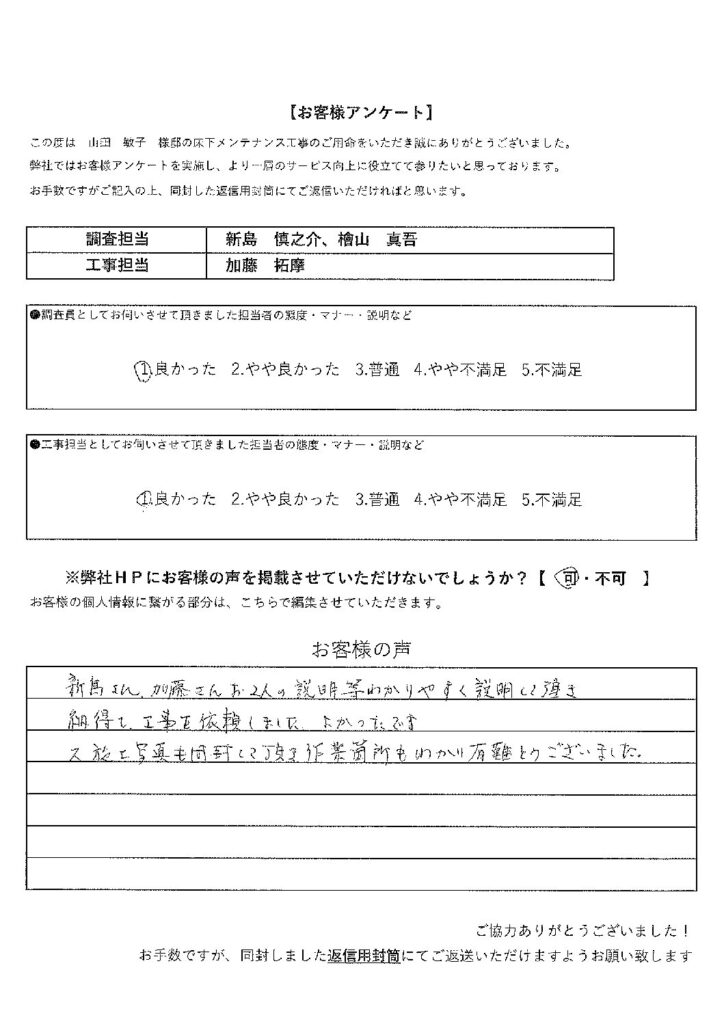 【お客様アンケート】
この度は　山田　敏子　様邸の床下メンテナンス工事のご用命をいただき誠にありがとうございました。
弊社ではお客様アンケートを実施し、より一層のサービス向上に役立てて参りたいと思っております。
お手数ですがご記入の上、同封した返信用封筒にてご返信いただければと思います。
調査担当　新島　慎之介、檜山　真吾
工事担当　加藤　拓摩
●調査員としてお伺いさせて頂きました担当者の態度・マナー・説明など
1.良かった　2.やや良かった　3.普通　4.やや不満足　5.不満足
●工事担当としてお伺いさせて頂きました担当者の態度・マナー・説明など
1.良かった　2.やや良かった　3.普通　4.やや不満足　5.不満足
※弊社ＨＰにお客様の声を掲載させていただけないでしょうか？【　可・不可　】
お客様の個人情報に繋がる部分は、こちらで編集させていただきます。
お客様の声
新島さん、加藤さんお2人の説明等わかりやすく説明して頂き
納得し、工事を依頼しました。よかったです
又施工写真も同封して頂き作業箇所もわかり有難とうございました。
ご協力ありがとうございました！
お手数ですが、同封しました返信用封筒にてご返送いただけますようお願い致します